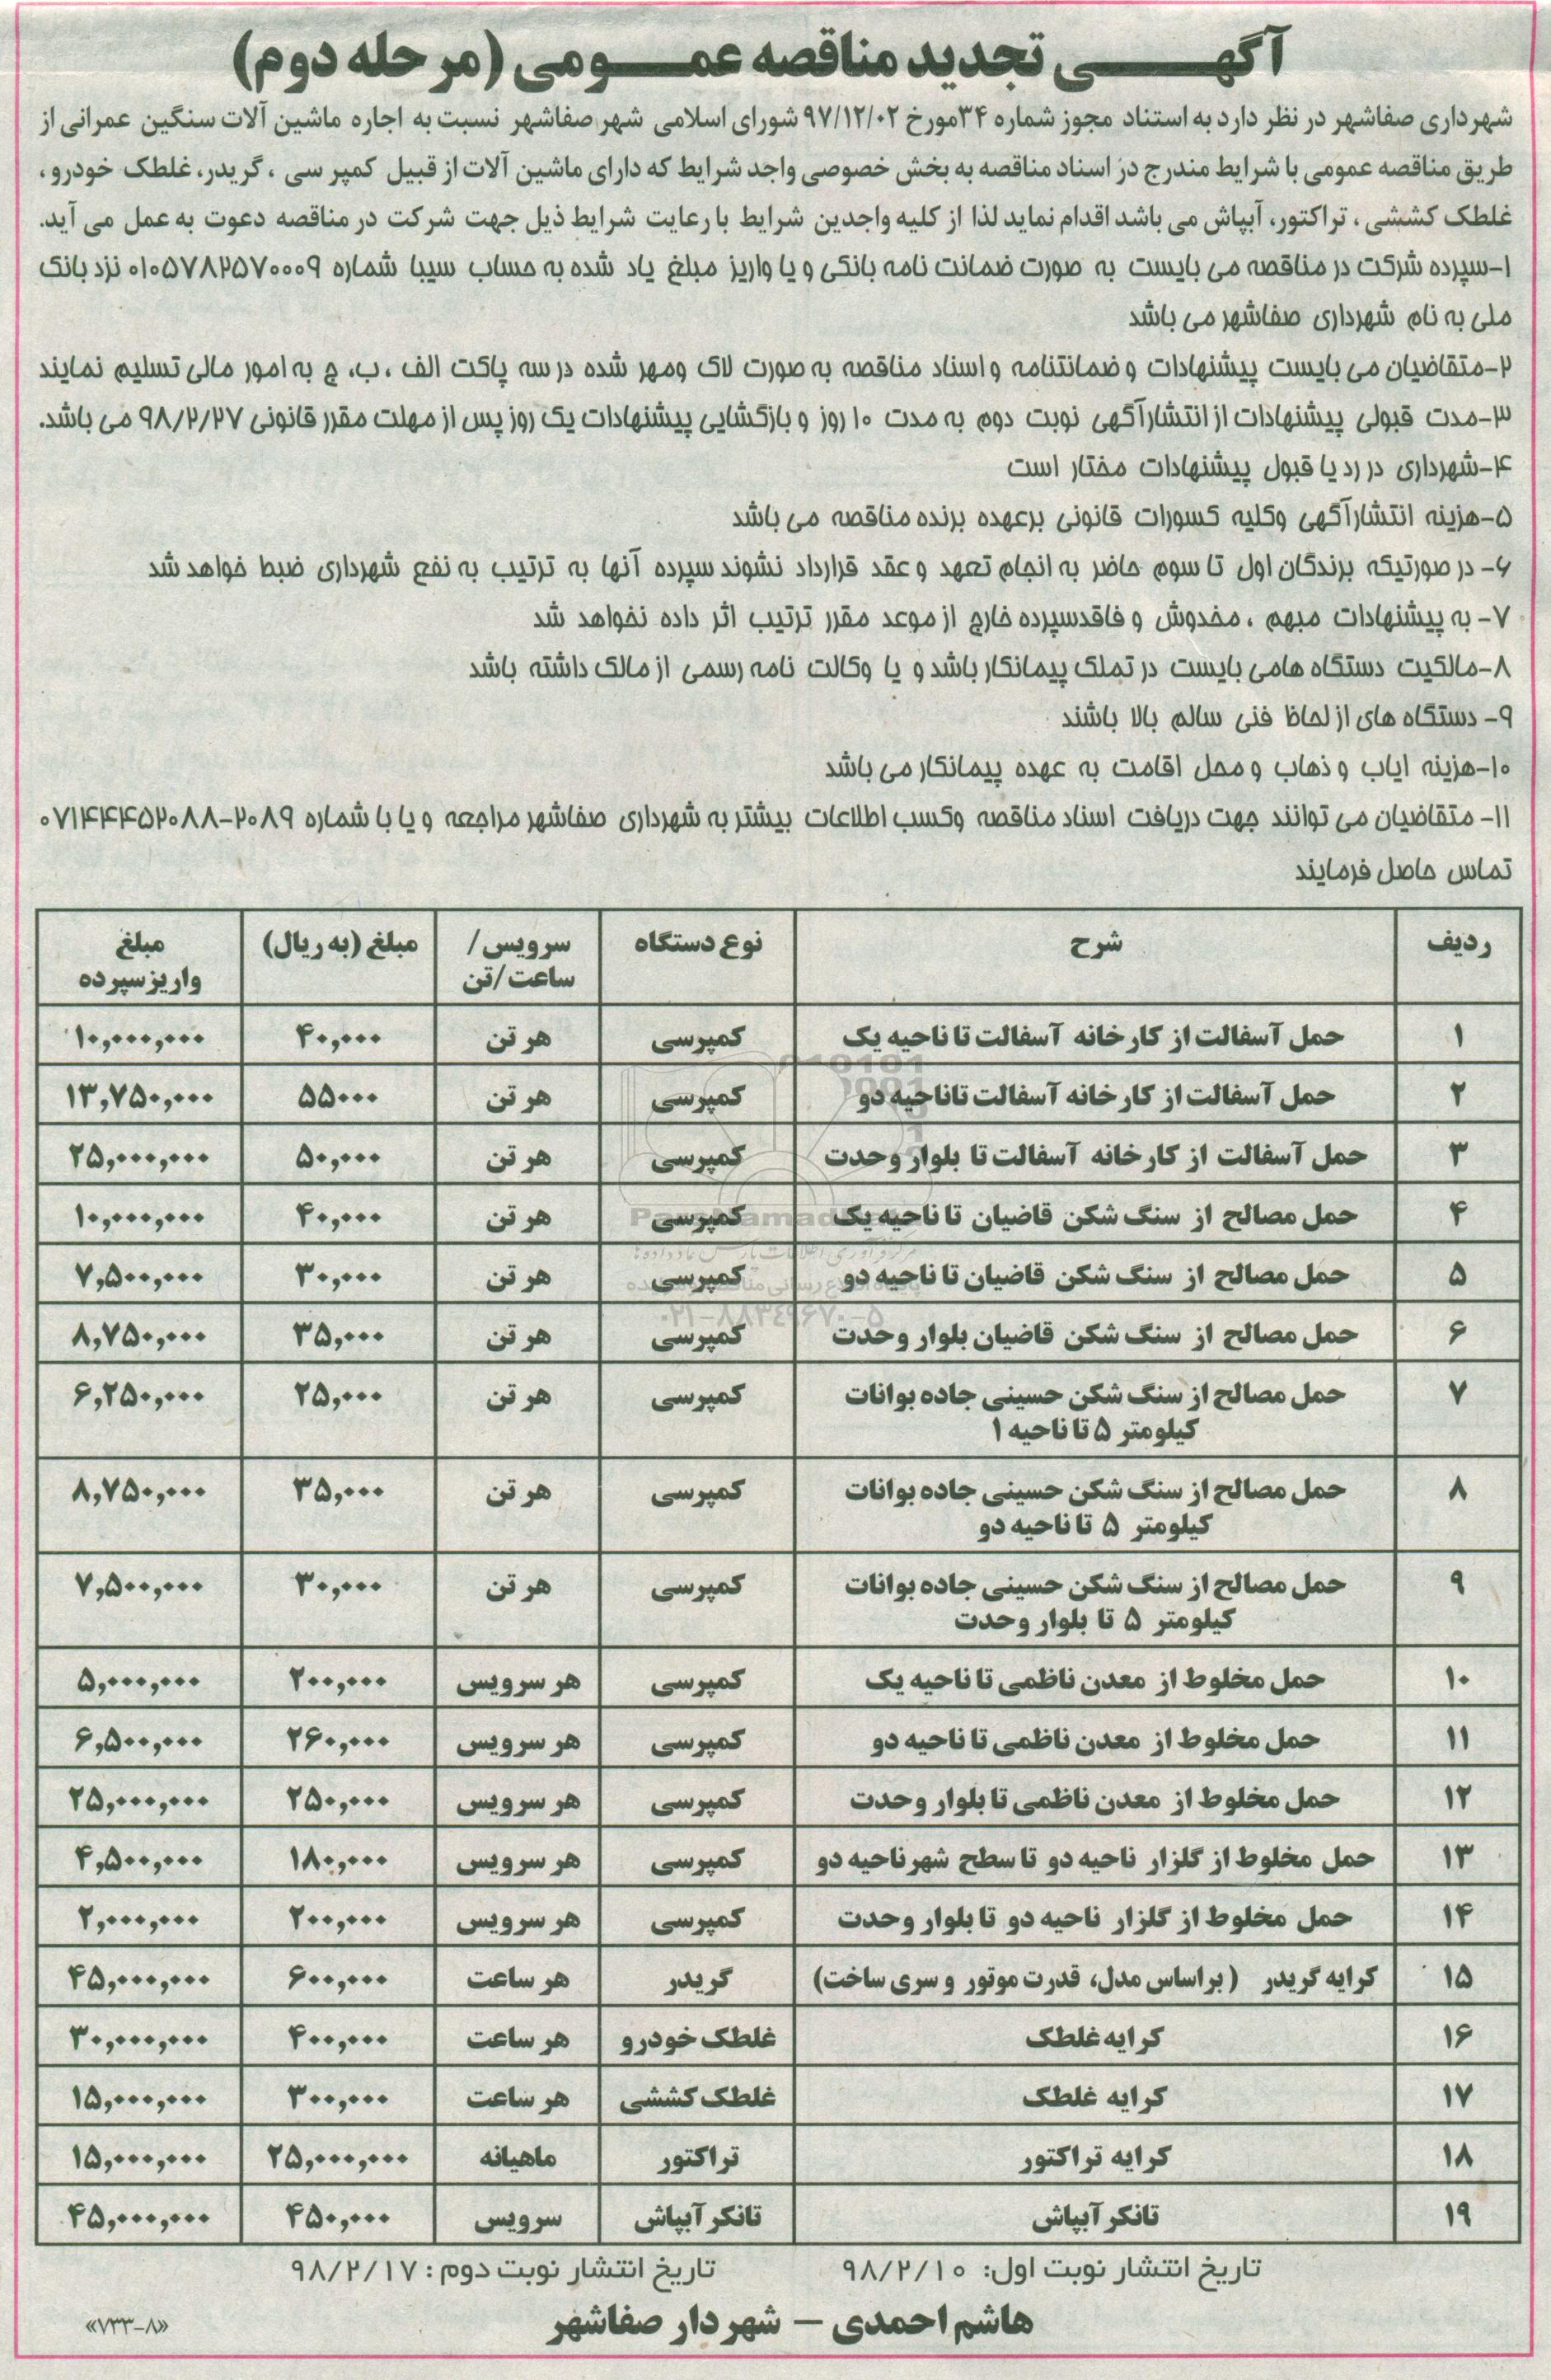 آگهی تجدید مناقصه عمومی (مرحله دوم)
شهرداری صفاشهر در نظر دارد به استناد مجوز شماره ۳۴مورخ ۹۷/۱۲/۰۲ شورای اسلامی شهر صفاشهر نسبت به اجاره ماشین آلات سنگین عمرانی از
طریق مناقصه عمومی با شرایط مندرج در اسناد مناقصه به بخش خصوصی واجد شرایط که دارای ماشین آلات از قبیل کمپرسی ، گریدر، غلطک خودرو ،
غلطک کششی ، تراکتور، آبپاش می باشد اقدام نماید لذا از کلیه واجدین شرایط با رعایت شرایط ذیل جهت شرکت در مناقصه دعوت به عمل می آید.
۱-سپرده شرکت در مناقصه می بایست به صورت ضمانت نامه بانکی و یا واریز مبلغ یاد شده به حساب سیبا شماره ۰۱۰۵۷۸۲۵۷۰۰۰۹ نزد بانک
ملی به نام شهرداری صفاشهر می باشد
۲-متقاضیان می بایست پیشنهادات و ضمانتنامه و اسناد مناقصه به صورت لاک ومهر شده در سه پاکت الف ، ب، ج به امور مالی تسلیم نمایند
۳-مدت قبولی پیشنهادات از انتشارآگهی نوبت دوم به مدت ۱۰ روز و بازگشایی پیشنهادات یک روز پس از مهلت مقرر قانونی ۹۸/۲/۲۷ می باشد.
۴-شهرداری در رد یا قبول پیشنهادات مختار است
۵-هزینه انتشارآگهی وکلیه کسورات قانونی برعهده برنده مناقصه می باشد
۶- در صورتیکه برندگان اول تا سوم حاضر به انجام تعهد و عقد قرارداد نشوند سپرده آنها به ترتیب به نفع شهرداری ضبط خواهد شد
۷- به پیشنهادات مبهم ، مخدوش و فاقدسپرده خارج از موعد مقرر ترتیب اثر داده نخواهد شد
۸-مالکیت دستگاه هامی بایست در تملک پیمانکار باشد و یا وکالت نامه رسمی از مالک داشته باشد
۹- دستگاه های از لحاظ فنی سالم بالا باشند
۱۰-هزینه ایاب و ذهاب و محل اقامت به عهده پیمانکار می باشد
۱۱- متقاضیان می توانند جهت دریافت اسناد مناقصه وکسب اطلاعات بیشتر به شهرداری صفاشهر مراجعه و یا با شماره ۲۰۸۹-۰۷۱۴۴۴۵۲۰۸۸
تماس حاصل فرمایند
ردیف شرح نوع دستگاه سرویس/ساعت/تن مبلغ (به ریال) مبلغ واریز سپرده
۱ حمل آسفالت از کارخانه آسفالت تا ناحیه یک کمپرسی هر تن ۴۰,۰۰۰ ۱۰,۰۰۰,۰۰۰
۲ حمل آسفالت از کارخانه آسفالت تاناحیه دو کمپرسی هر تن ۵۵۰۰۰ ۱۳,۷۵۰,۰۰۰
۳ حمل آسفالت از کارخانه آسفالت تا بلوار وحدت کمپرسی هر تن ۵۰,۰۰۰ ۲۵,۰۰۰,۰۰۰
۴ حمل مصالح از سنگ شکن قاضیان تا ناحیه یک کمپرسی هر تن ۴۰,۰۰۰ ۱۰,۰۰۰,۰۰۰
۵ حمل مصالح از سنگ شکن قاضیان تا ناحیه دو کمپرسی هر تن ۳۰,۰۰۰ ۷,۵۰۰,۰۰۰
۶ حمل مصالح از سنگ شکن قاضیان بلوار وحدت کمپرسی هر تن ۳۵,۰۰۰ ۸,۷۵۰,۰۰۰
۷ حمل مصالح از سنگ شکن حسینی جاده بوانات کیلومتر ۵ تا ناحیه ۱ کمپرسی هر تن ۲۵,۰۰۰ ۶,۲۵۰,۰۰۰
۸ حمل مصالح از سنگ شکن حسینی جاده بوانات کیلومتر ۵ تا ناحیه دو کمپرسی هر تن ۳۵,۰۰۰ ۸,۷۵۰,۰۰۰
۹ حمل مصالح از سنگ شکن حسینی جاده بوانات کیلومتر ۵ تا بلوار وحدت کمپرسی هر تن ۳۰,۰۰۰ ۷,۵۰۰,۰۰۰
۱۰ حمل مخلوط از معدن ناظمی تا ناحیه یک کمپرسی هر سرویس ۲۰۰,۰۰۰ ۵,۰۰۰,۰۰۰
۱۱ حمل مخلوط از معدن ناظمی تا ناحیه دو کمپرسی هر سرویس ۲۶۰,۰۰۰ ۶,۵۰۰,۰۰۰
۱۲ حمل مخلوط از معدن ناظمی تا بلوار وحدت کمپرسی هر سرویس ۲۵۰,۰۰۰ ۲۵,۰۰۰,۰۰۰
۱۳ حمل مخلوط از گلزار ناحیه دو تا سطح شهرناحیه دو کمپرسی هر سرویس ۱۸۰,۰۰۰ ۴,۵۰۰,۰۰۰
۱۴ حمل مخلوط از گلزار ناحیه دو تا بلوار وحدت کمپرسی هر سرویس ۲۰۰,۰۰۰ ۲,۰۰۰,۰۰۰
۱۵ کرایه گریدر (براساس مدل، قدرت موتور و سری ساخت) گریدر هر ساعت ۶۰۰,۰۰۰ ۴۵,۰۰۰,۰۰۰
۱۶ کرایه غلطک غلطک خودرو هر ساعت ۴۰۰,۰۰۰ ۳۰,۰۰۰,۰۰۰
۱۷ کرایه غلطک غلطک کششی هر ساعت ۳۰۰,۰۰۰ ۱۵,۰۰۰,۰۰۰
۱۸ کرایه تراکتور تراکتور ماهیانه ۲۵,۰۰۰,۰۰۰ ۱۵,۰۰۰,۰۰۰
۱۹ تانکر آبپاش تانکر آبپاش سرویس ۴۵۰,۰۰۰ ۴۵,۰۰۰,۰۰۰
تاریخ انتشار نوبت اول: ۹۸/۲/۱۰ تاریخ انتشار نوبت دوم : ۹۸/۲/۱۷
هاشم احمدی – شهردار صفاشهر
«۷۳۳-۸»
۰۲۱-۸۸۳۴۹۶۷۰-۵